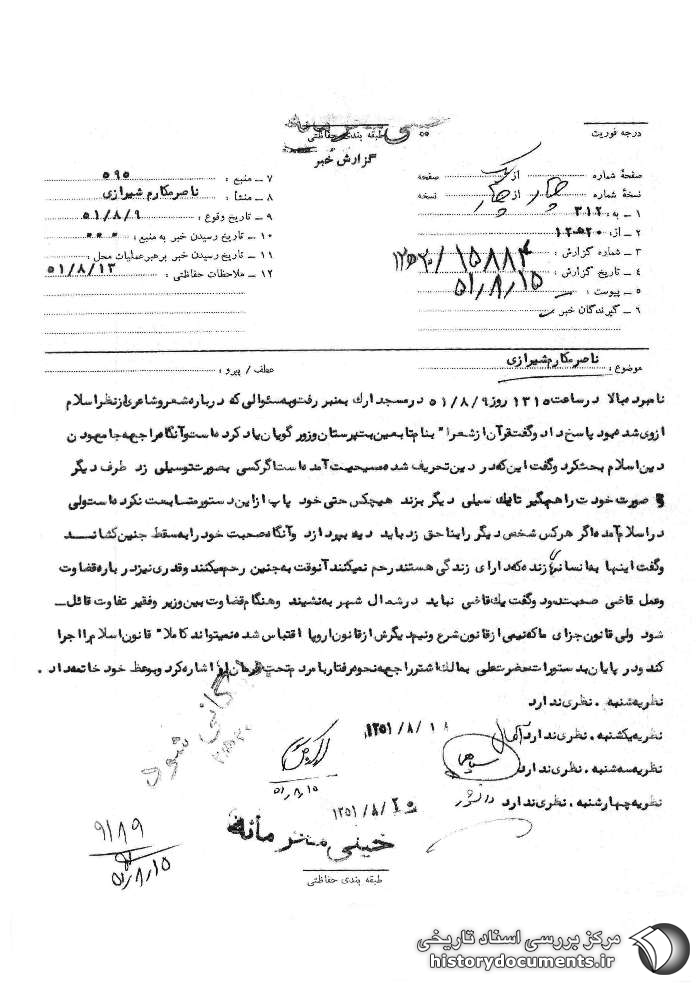 خیلی محرمانه
طبقه بندی حفاظتی
گزارش خبر
درجه فوریت
صفحهٔ شماره از یک صفحه
نسخهٔ شماره چهار از چهار نسخه
۱ ـ به : ۳۱۲
۲ ـ از : ۱۲ ه ۲۰
۳ ـ شماره گزارش : ۱۵۸۸۴ / ۱۲ ه ۲۰
۴ ـ تاریخ گزارش : ۵۱/۸/۱۵
۵ ـ پیوست :
۶ ـ گیرندگان خبر
۷ ـ منبع : ۵۹۵
۸ ـ منشأ : ناصر مکارم شیرازی
۹ ـ تاریخ وقوع : ۵۱/۸/۹
۱۰ ـ تاریخ رسیدن خبر به منبع :
۱۱ ـ تاریخ رسیدن خبر برهبر عملیات محل :
۱۲ ـ ملاحظات حفاظتی : ۵۱/۸/۱۳
موضوع : ناصر مکارم شیرازی
عطف / پیرو :
نامبرده بالا در ساعت ۱۳۱۵ روز ۵۱/۸/۹ در مسجد ارك بمنبر رفت و به سئوالی که درباره شعر و شاعری از نظر اسلام
از وی شده بود پاسخ داد و گفت قرآن از شعرا" بنام تابعین بت پرستان و زورگویان یاد کرده است و آنگاه راجع به جامع بودن
دین اسلام بحث کرد و گفت این که در دین تحریف شده مسیحیت آمده است اگر کسی بصورت تو سیلی زد طرف دیگر
صورت خودت را هم بگیر تا یك سیلی دیگر بزند هیچکس حتی خود پاپ از این دستور متابعت نکرده است ولی
در اسلام آمده اگر هر کس شخص دیگر را بناحق زد باید دیه بپردازد و آنگاه صحبت خود را به سقط جنین کشانید
و گفت اینها به انسانهای زنده که دارای زندگی هستند رحم نمیکنند آنوقت به جنین رحم میکنند و قدری نیز درباره قضاوت
و عمل قاضی صحبت نمود و گفت یك قاضی نباید در شمال شهر به نشیند و هنگام قضاوت بین وزیر و فقیر تفاوت قائل ـ
شود ولی قانون جزای ما که نیمی از قانون شرع و نیم دیگرش از قانون اروپا اقتباس شده نمیتواند کاملا" قانون اسلام را اجرا
کند و در پایان به دستورات حضرت علی به مالك اشتر راجع به نحوه رفتار با مردم تحت فرمان او اشاره کرد و بوعظ خود خاتمه داد .
نظریه شنبه . نظری ندارد
نظریه یکشنبه . نظری ندارد آمال ۱۳۵۱/۸/۱
نظریه سه شنبه . نظری ندارد
نظریه چهارشنبه . نظری ندارد دانشور ۱۳۵۱/۸/
۵۱/۸/۱۵
خیلی محرمانه
طبقه بندی حفاظتی
۹۱۸۹
۵۱/۸/۱۵
مرکز بررسی اسناد تاریخی
historydocuments.ir